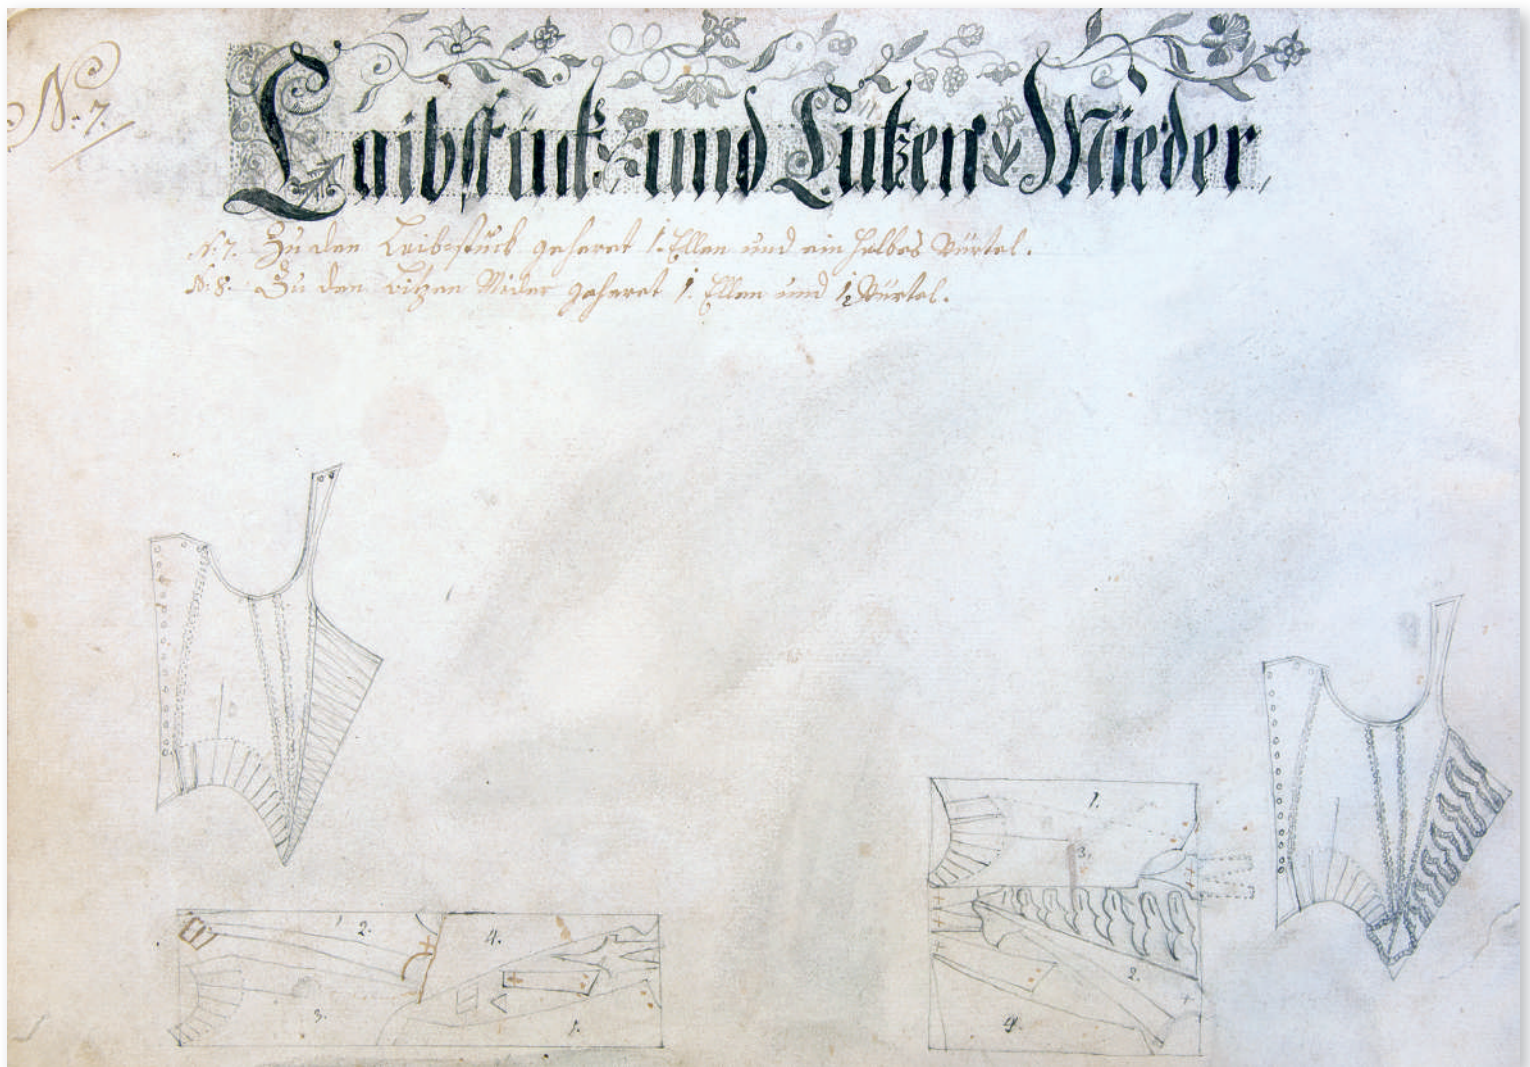 N: 7.
Laibstück und Lutzen Mieder
N: 7. Zu den Leib=stück geheret 1. Ellen und ein halbes Vürtel.
N: 8. Zu den Mider geheret 1. Ellen und Vürtel.
2.
4.
3.
1.
1.
3.
2.
4.